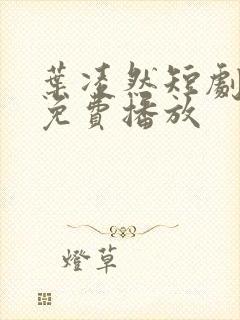 葉凌然短劇
免費播放
燈草